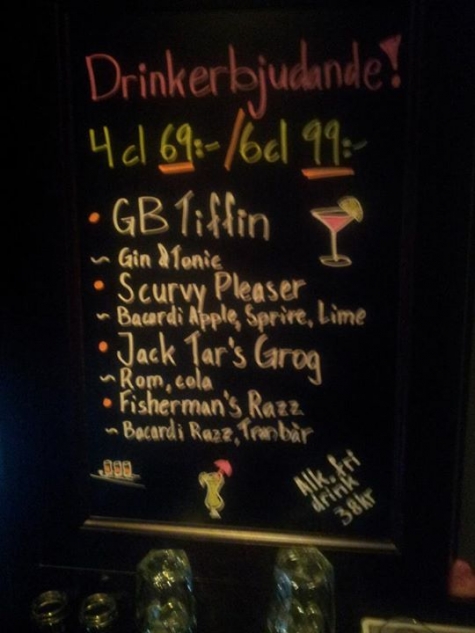 Drinkerbjudande!
4cl 69:-/6cl 99:-
• GB Tiffin
~ Gin & Tonic
• Scurvy Pleaser
~ Bacardi Apple, Sprire, Lime
• Jack Tar's Grog
~ Rom, cola
• Fisherman's Razz
~ Bacardi Razz, Tranbär
Alk. fri
drink
38kr